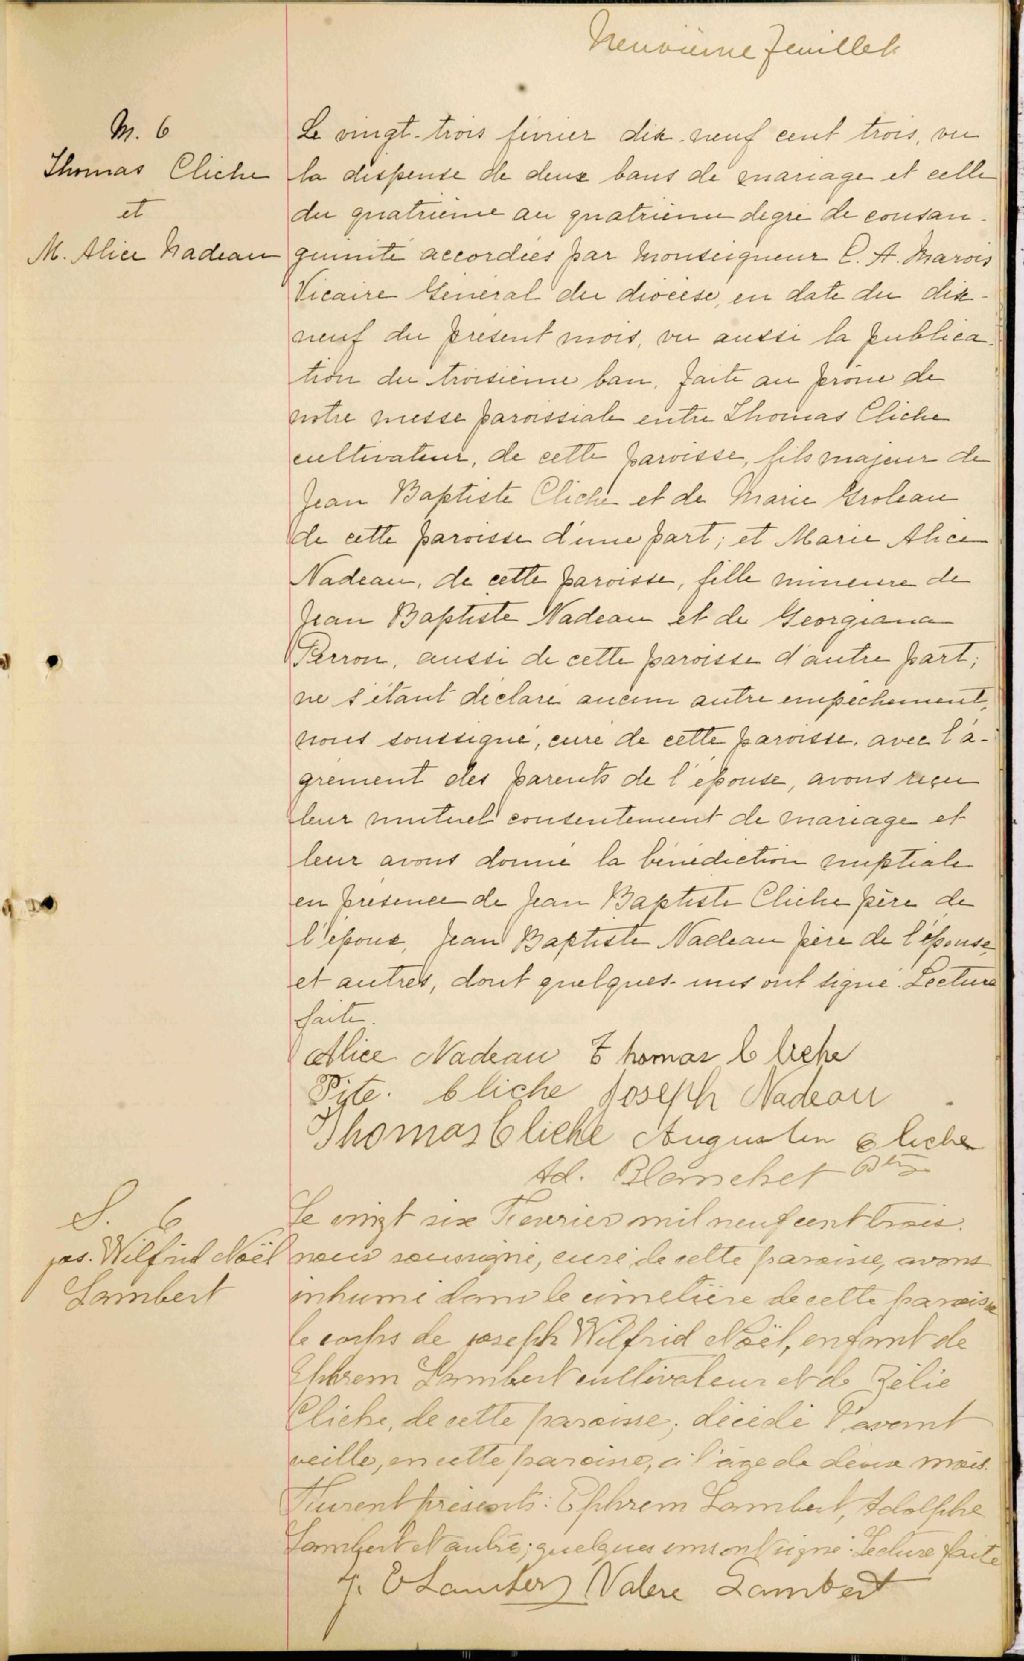 Neuvième feuillet
M. 6
Thomas Cliche
et
M. Alice Nadeau
Le vingt-trois février dix-neuf cent trois, vu
la dispense de deux bans de mariage et celle
du quatrième au quatrième degré de consan-
guinité accordées par Monseigneur C. A. Marois
Vicaire Général du diocèse, en date du dix-
neuf du présent mois, vu aussi la publica-
tion du troisième ban, faite au prône de
notre messe paroissiale entre Thomas Cliche
cultivateur, de cette paroisse, fils majeur de
Jean Baptiste Cliche et de Marie Groleau
de cette paroisse d'une part; et Marie Alice
Nadeau, de cette paroisse, fille mineure de
Jean Baptiste Nadeau et de Georgiana
Perron, aussi de cette paroisse d'autre part;
ne s'étant déclaré aucun autre empêchement,
nous soussigné, curé de cette paroisse, avec l'a-
grément des parents de l'épouse, avons reçu
leur mutuel consentement de mariage et
leur avons donné la bénédiction nuptiale
en présence de Jean Baptiste Cliche père de
l'époux, Jean Baptiste Nadeau père de l'épouse,
et autres, dont quelques-uns ont signé. Lecture
faite.
Alice Nadeau Thomas Cliche
Pite. Cliche Joseph Nadeau
Thomas Cliche Augustin Cliche
Ad. Blanchet Ptre
S. 6
Jos. Wilfrid Noël
Lambert
Le vingt six Fevrier mil neuf cent trois.
nous soussigné, curé de cette paroisse, avons
inhumé dans le cimetière de cette paroisse
le corps de Joseph Wilfrid Noël, enfant de
Ephrem Lambert cultivateur et de Zélie
Cliche, de cette paroisse; décédé l'avant
veille, en cette paroisse, à l'âge de deux mois.
Furent présents: Ephrem Lambert, Adolphe
Lambert et autres; quelques uns ont signé. Lecture faite
J. E Lambert Valere Lambert